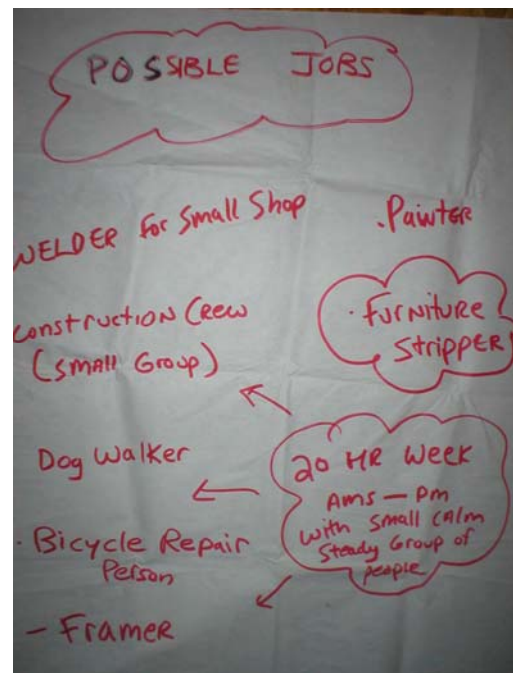 POSSIBLE JOBS
WELDER for Small Shop
.Painter
Construction Crew
(Small Group)
. Furniture
Stripper
Dog Walker
20 HR Week
AMs — Pm
with small CAlm
Steady Group of
people
. Bicycle Repair
Person
- Framer